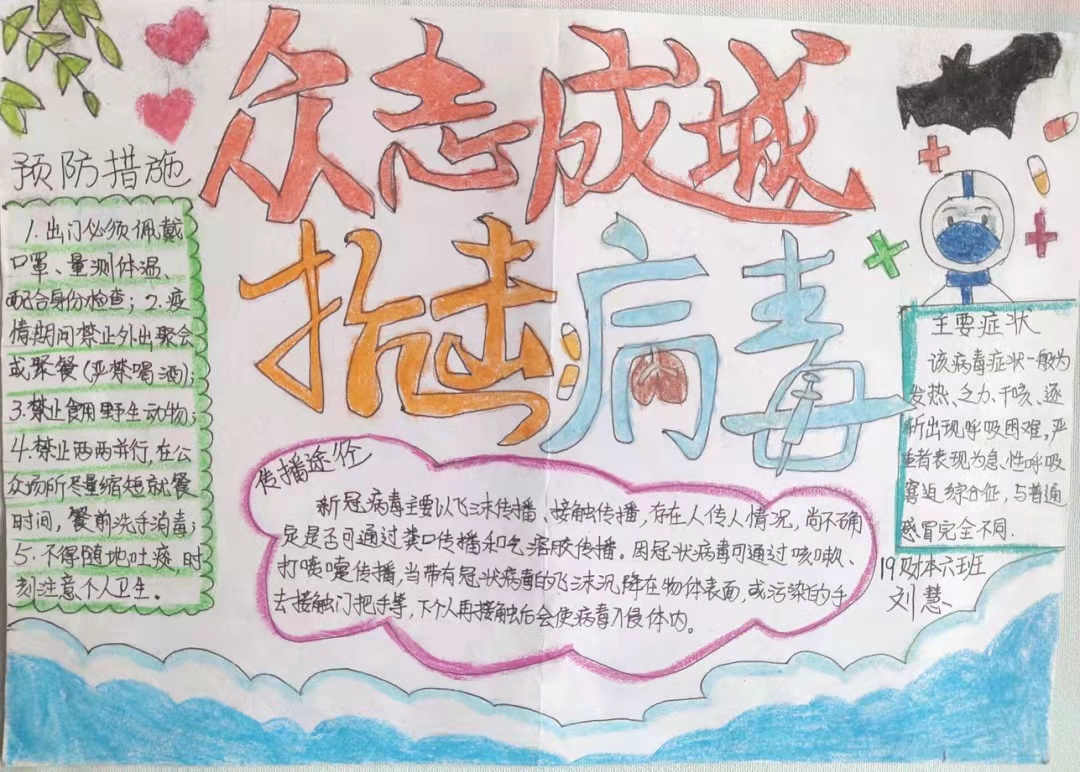 众志成城
抗击病毒
预防措施
1.出门必须佩戴
口罩、量测体温、
配合身份检查；2.疫
情期间禁止外出聚会
或聚餐(严禁喝酒)；
3.禁止食用野生动物；
4.禁止两两并行，在公
众场所尽量缩短就餐
时间，餐前洗手消毒；
5.不得随地吐痰，时
刻注意个人卫生。
传播途径
新冠病毒主要以飞沫传播、接触传播，存在人传人情况，尚不确
定是否可通过粪口传播和气溶胶传播。因冠状病毒可通过咳嗽、
打喷嚏传播，当带有冠状病毒的飞沫沉降在物体表面，或污染的手
去接触门把手等，下个人再接触后会使病毒入侵体内。
主要症状
该病毒症状一般为
发热、乏力、干咳、逐
渐出现呼吸困难，严
重者表现为急性呼吸
窘迫综合征，与普通
感冒完全不同.
19财本六班
刘慧